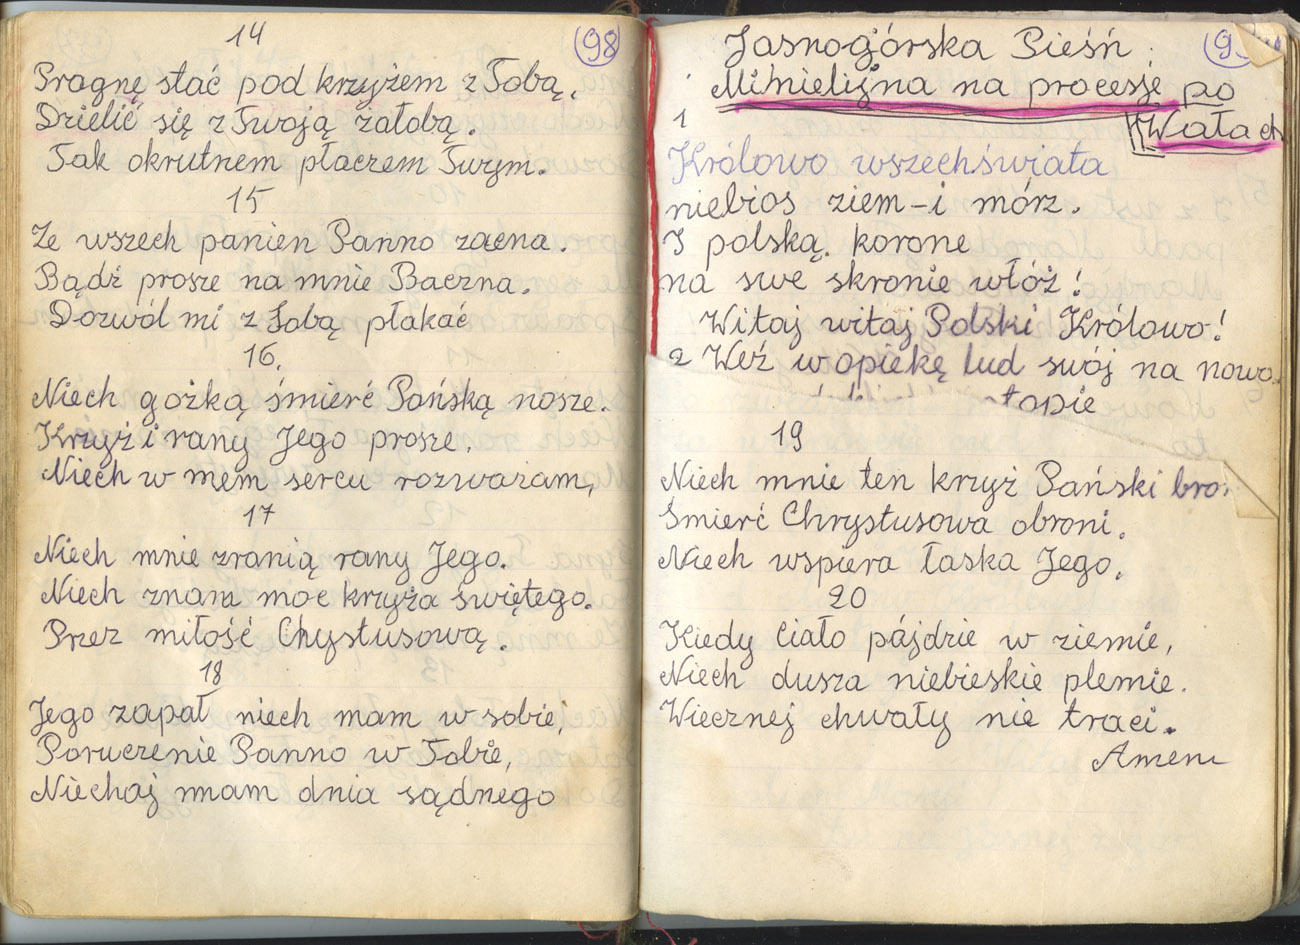 14
(98)
Pragnę stać pod krzyżem z Tobą,
Dzielić się z Twoją załobą.
Tak okrutnem płaczem Twym.
15
Ze wszech panien Panno zacna.
Bądź prosze na mnie Baczna.
Dozwól mi z Tobą płakać
16.
Niech gożką śmierć Pańską nosze.
Krzyż i rany Jego prosze,
Niech w mem sercu rozważam,
17
Niech mnie zranią rany Jego.
Niech znam moc krzyża świętego.
Przez miłość Chystusową.
18
Jego zapał niech mam w sobie,
Poruczenie Panno w Tobie,
Niechaj mam dnia sądnego
Jasnogórska Pieśń
na procesje po
Wałach
1
Królowo wszechświata
niebios ziem-i mórz.
I polską korone
na swe skronie włóż!
Witaj witaj Polski Królowo!
2 Weź w opiekę lud swój na nowo
19
Niech mnie ten krzyż Pański bro
Śmierć Chrystusowa obroni.
Niech wspiera łaska Jego,
20
Kiedy ciało pójdzie w ziemie,
Niech dusza niebieskie plemie.
Wiecznej chwały nie traci.
Amen